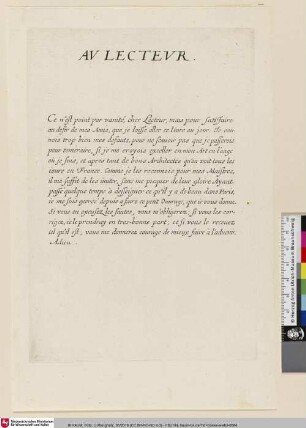 AV LECTEVR.
Ce n'est point par vanité, cher Lecteur, mais pour satisfaire
au desir de mes Amis, que je laisse aller ce livre au jour. Je con-
nois trop bien mes defauts, pour ne sçavoir pas que je passerois
pour temeraire, si je me croyois exceller en mon Art en l'aage
où je suis, et apres tant de bons Architectes qu'on voit tous les
jours en France. Comme je les reconnois pour mes Maistres,
il me suffit de les imiter, sans me picquer de leur gloire. Ayant
passé quelque temps à desseigner ce qu'il y a de beau dans Paris,
je me suis
depuis à faire ce petit Ouvrage, que je vous donne.
Si vous en excusez les fautes, vous m'obligerez; si vous les cor-
rigez, je le prendray en tres-bonne part; et si vous le recevez
tel qu'il est, vous me donnerez courage de mieux faire à l'advenir.
Adieu.